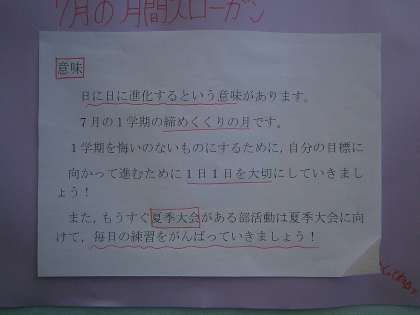 7月の月間スローガン
意味
日に日に進化するという意味があります。
7月の1学期の締めくくりの月です。
1学期を悔いのないものにするために,自分の目標に
向かって進むために1日1日を大切にしていきまし
ょう!
また,もうすぐ夏季大会がある部活動は夏季大会に向
けて,毎日の練習をがんばっていきましょう!